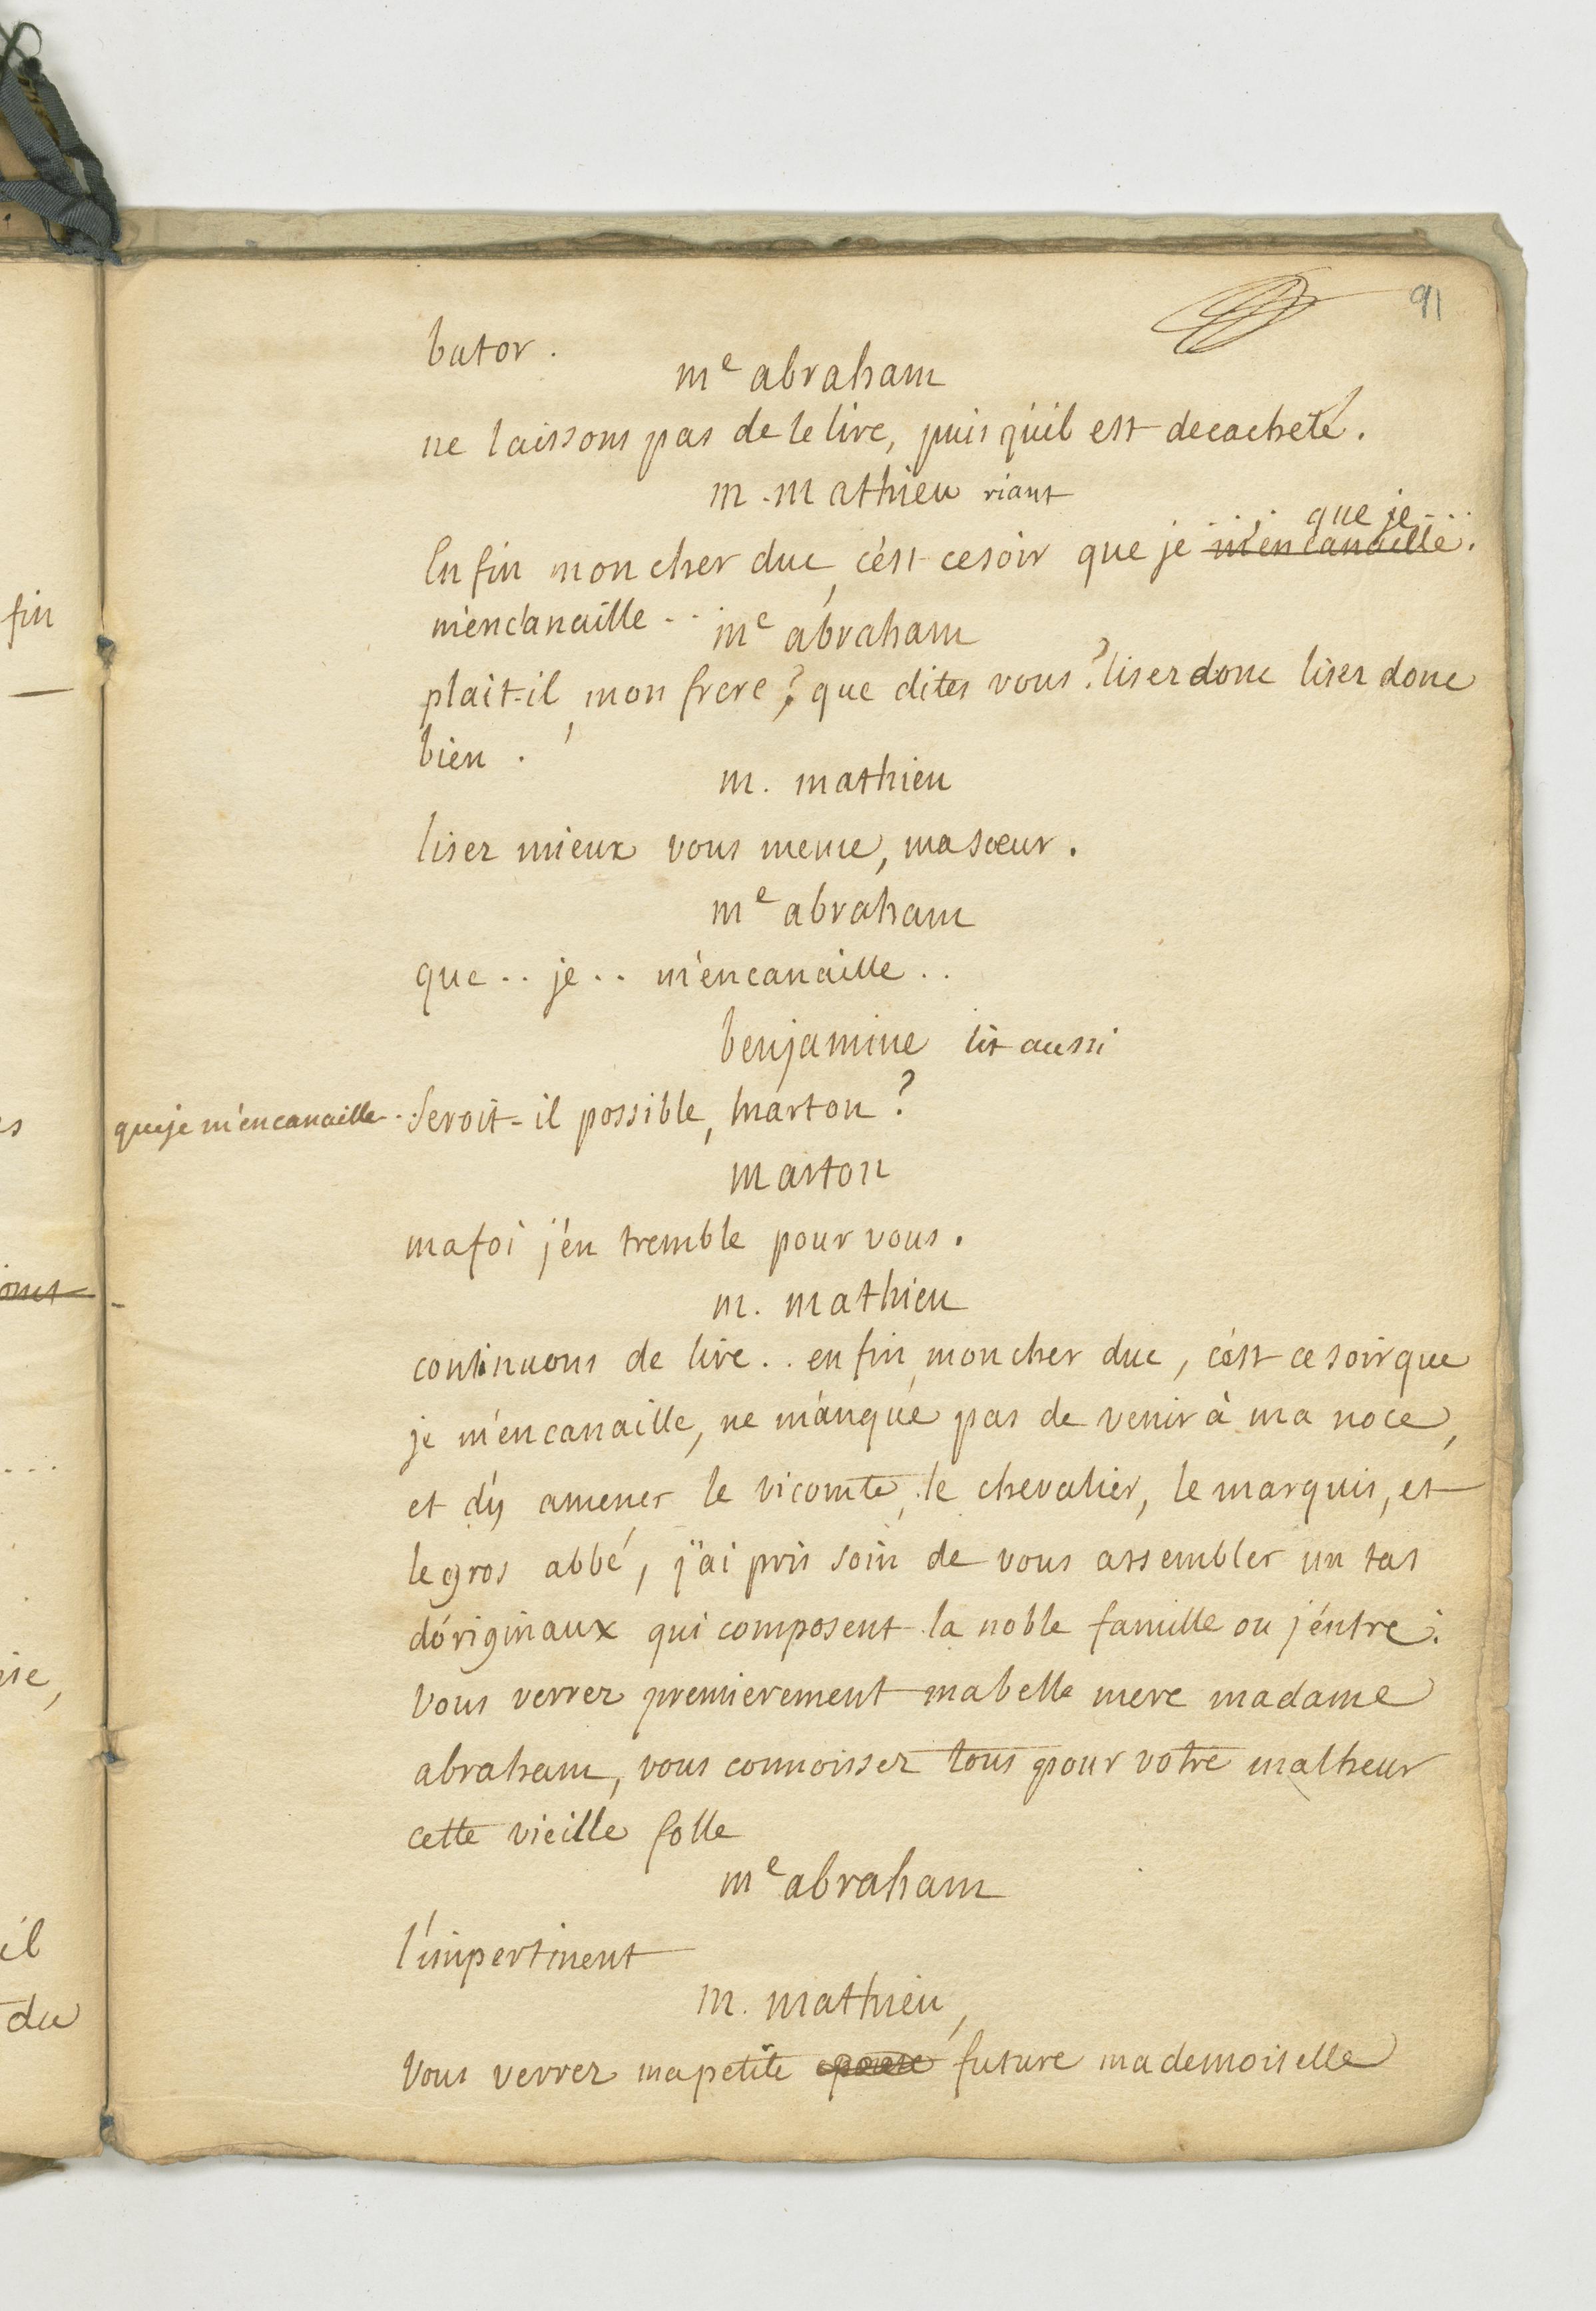 91
butor.
me abraham
ne laissons pas de le lire, puis qu'il est decacheté.
m. mathieu riant
.... que je...
Enfin mon cher duc, c'est ce soir que je m'encanaille.
m'encanaille...
me abraham
plait-il, mon frere? que dites vous? lisez donc lisez donc
bien.
m. mathieu
lisez mieux vous meme, ma soeur.
me abraham
que.. je.. m'encanaille..
benjamine lit aussi
que je m'encanaille.. seroit-il possible, marton?
marton
ma foi j'en tremble pour vous.
m. mathieu
continuons de lire.. enfin, mon cher duc, c'est ce soir que
je m'encanaille, ne manque pas de venir à ma noce,
et d'y amener le vicomte, le chevalier, le marquis, et
le gros abbé, j'ai pris soin de vous assembler un tas
d'originaux qui composent la noble famille ou j'entre:
vous verrez premierement ma belle mere madame
abraham, vous connoissez tous pour votre malheur
cette vieille folle
me abraham
l'impertinent
m. mathieu,
vous verrez ma petite epouse future mademoiselle
fin
il
du